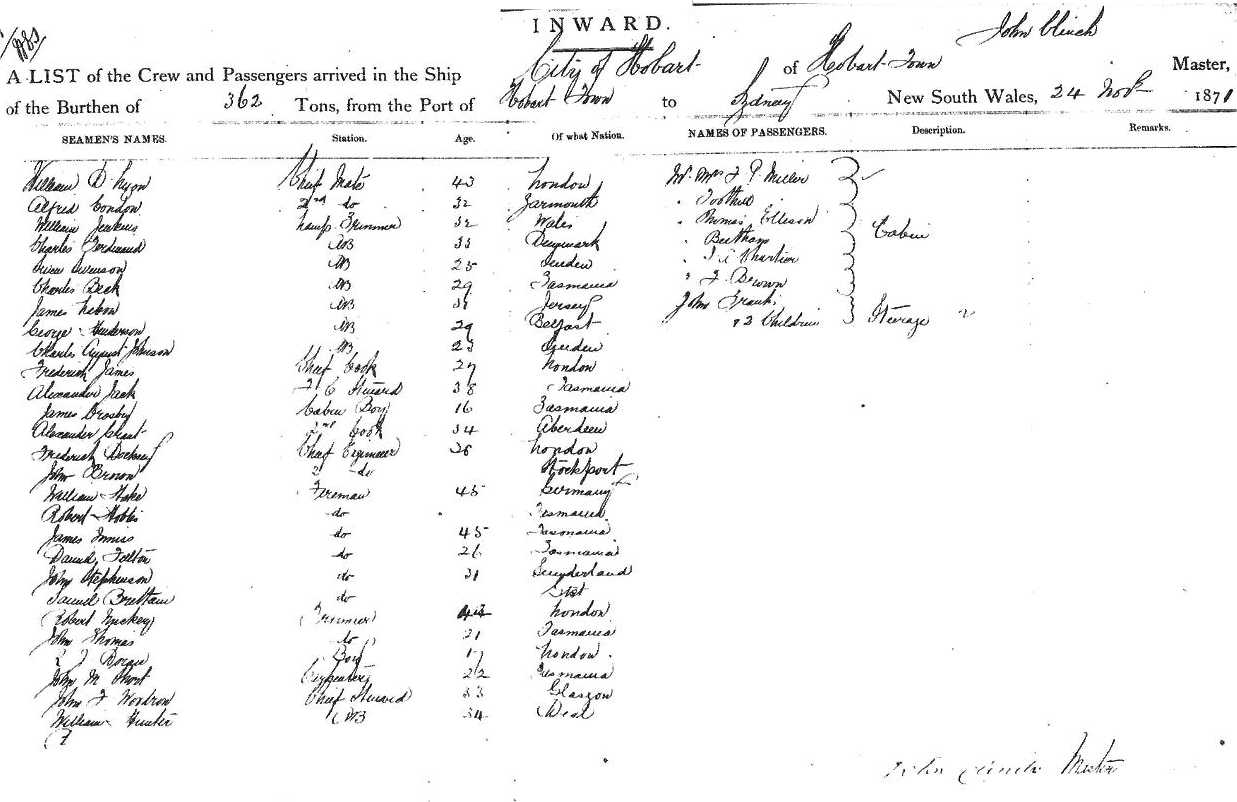 INWARD.
John Clinch
A LIST of the Crew and Passengers arrived in the Ship City of Hobart of Hobart Town Master,
of the Burthen of 362 Tons, from the Port of Hobart Town to Sydney New South Wales, 24 Novr 1871
SEAMEN'S NAMES. Station. Age. Of what Nation. NAMES OF PASSENGERS. Description. Remarks.
William D Lyon Chief Mate 43 London Mr Mrs J P Miller
Alfred Condon 2nd do 32 Yarmouth " Toothill
William Jenkins Lamp Trimmer 32 Wales " Thomas Ellison Cabin
Charles Ferdinand AB 33 Denmark "
Swen Swenson AB 25 Sweden "
Charles Beck AB 29 Tasmania " J Brown
James AB Jersey John Frank
George Henderson AB 29 Belfast & 2 Children Steerage
Charles August Johnson AB 23 Sweden
Frederick James Chief Cook 27 London
Alexander Jack Steward 38 Tasmania
James Crosby Cabin Boy 16 Tasmania
Alexander Grant 2nd Cook 34 Aberdeen
Frederick Chief Engineer 36 London
John Brown 2 do Stockport
William Hake Fireman 45 Germany
Robert Hobbs do Tasmania
James Innis do 45 Tasmania
Daniel Felton do 26 Tasmania
John Stephenson do 31 Sunderland
Samuel Brettain do
Robert Trimmer London
John Thomas do 21 Tasmania
Doran Boy 17 London
John M Short Carpenter 22 Tasmania
John F Woodrow Chief Steward 33 Glasgow
William Hunter AB 34 Deal
John Clinch Master